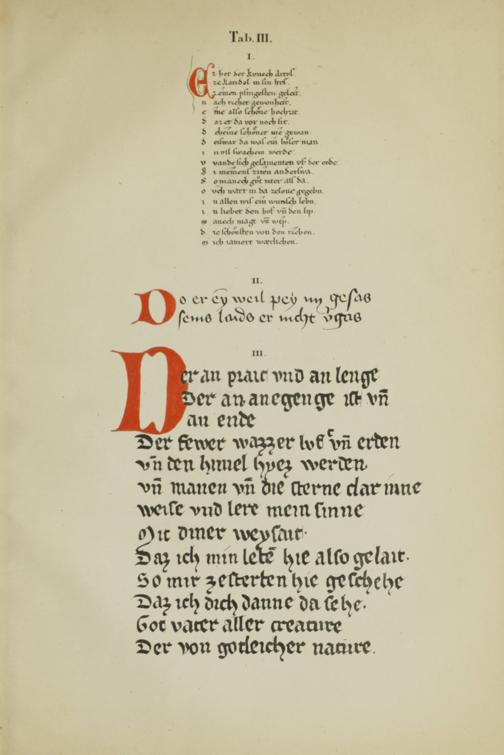 Tab. III.
I.
Ez het der kunech Artus.
ze Karidol in sin hus.
zeinen pfingesten geleit.
nach richer gewonheit.
eine also schone hochzit.
daz er da vor noch sit.
deheine schoner nie gewan.
deiswar da was ein boser man
in vil swachem werde
vvande sich gesamenten vf der erde
bi niemens ziten anderswa.
so manech gvt riter als da.
ovch wart in da zehove gegebn.
in allen wis ein wunsch lebn.
in liebet den hof vn den lip.
manech magt vn wip.
die schonsten von den richen.
mich iamert wærlichen.
II.
Do er ey weil pey im gesas
seins laids er nicht vgas
III.
Der an prait vnd an lenge
Der an anegenge ist vn
an ende
Der fewer wazzer luft vn erden
vn den himel hyez werden.
vn manen vn die sterne clar inne
weise vnd lere mein sinne
Mit diner weysait.
Daz ich min lebe hie also gelait.
So mir zesterben hie geschehe
Daz ich dich danne da sehe.
Got vater aller creature
Der von gotleicher nature.